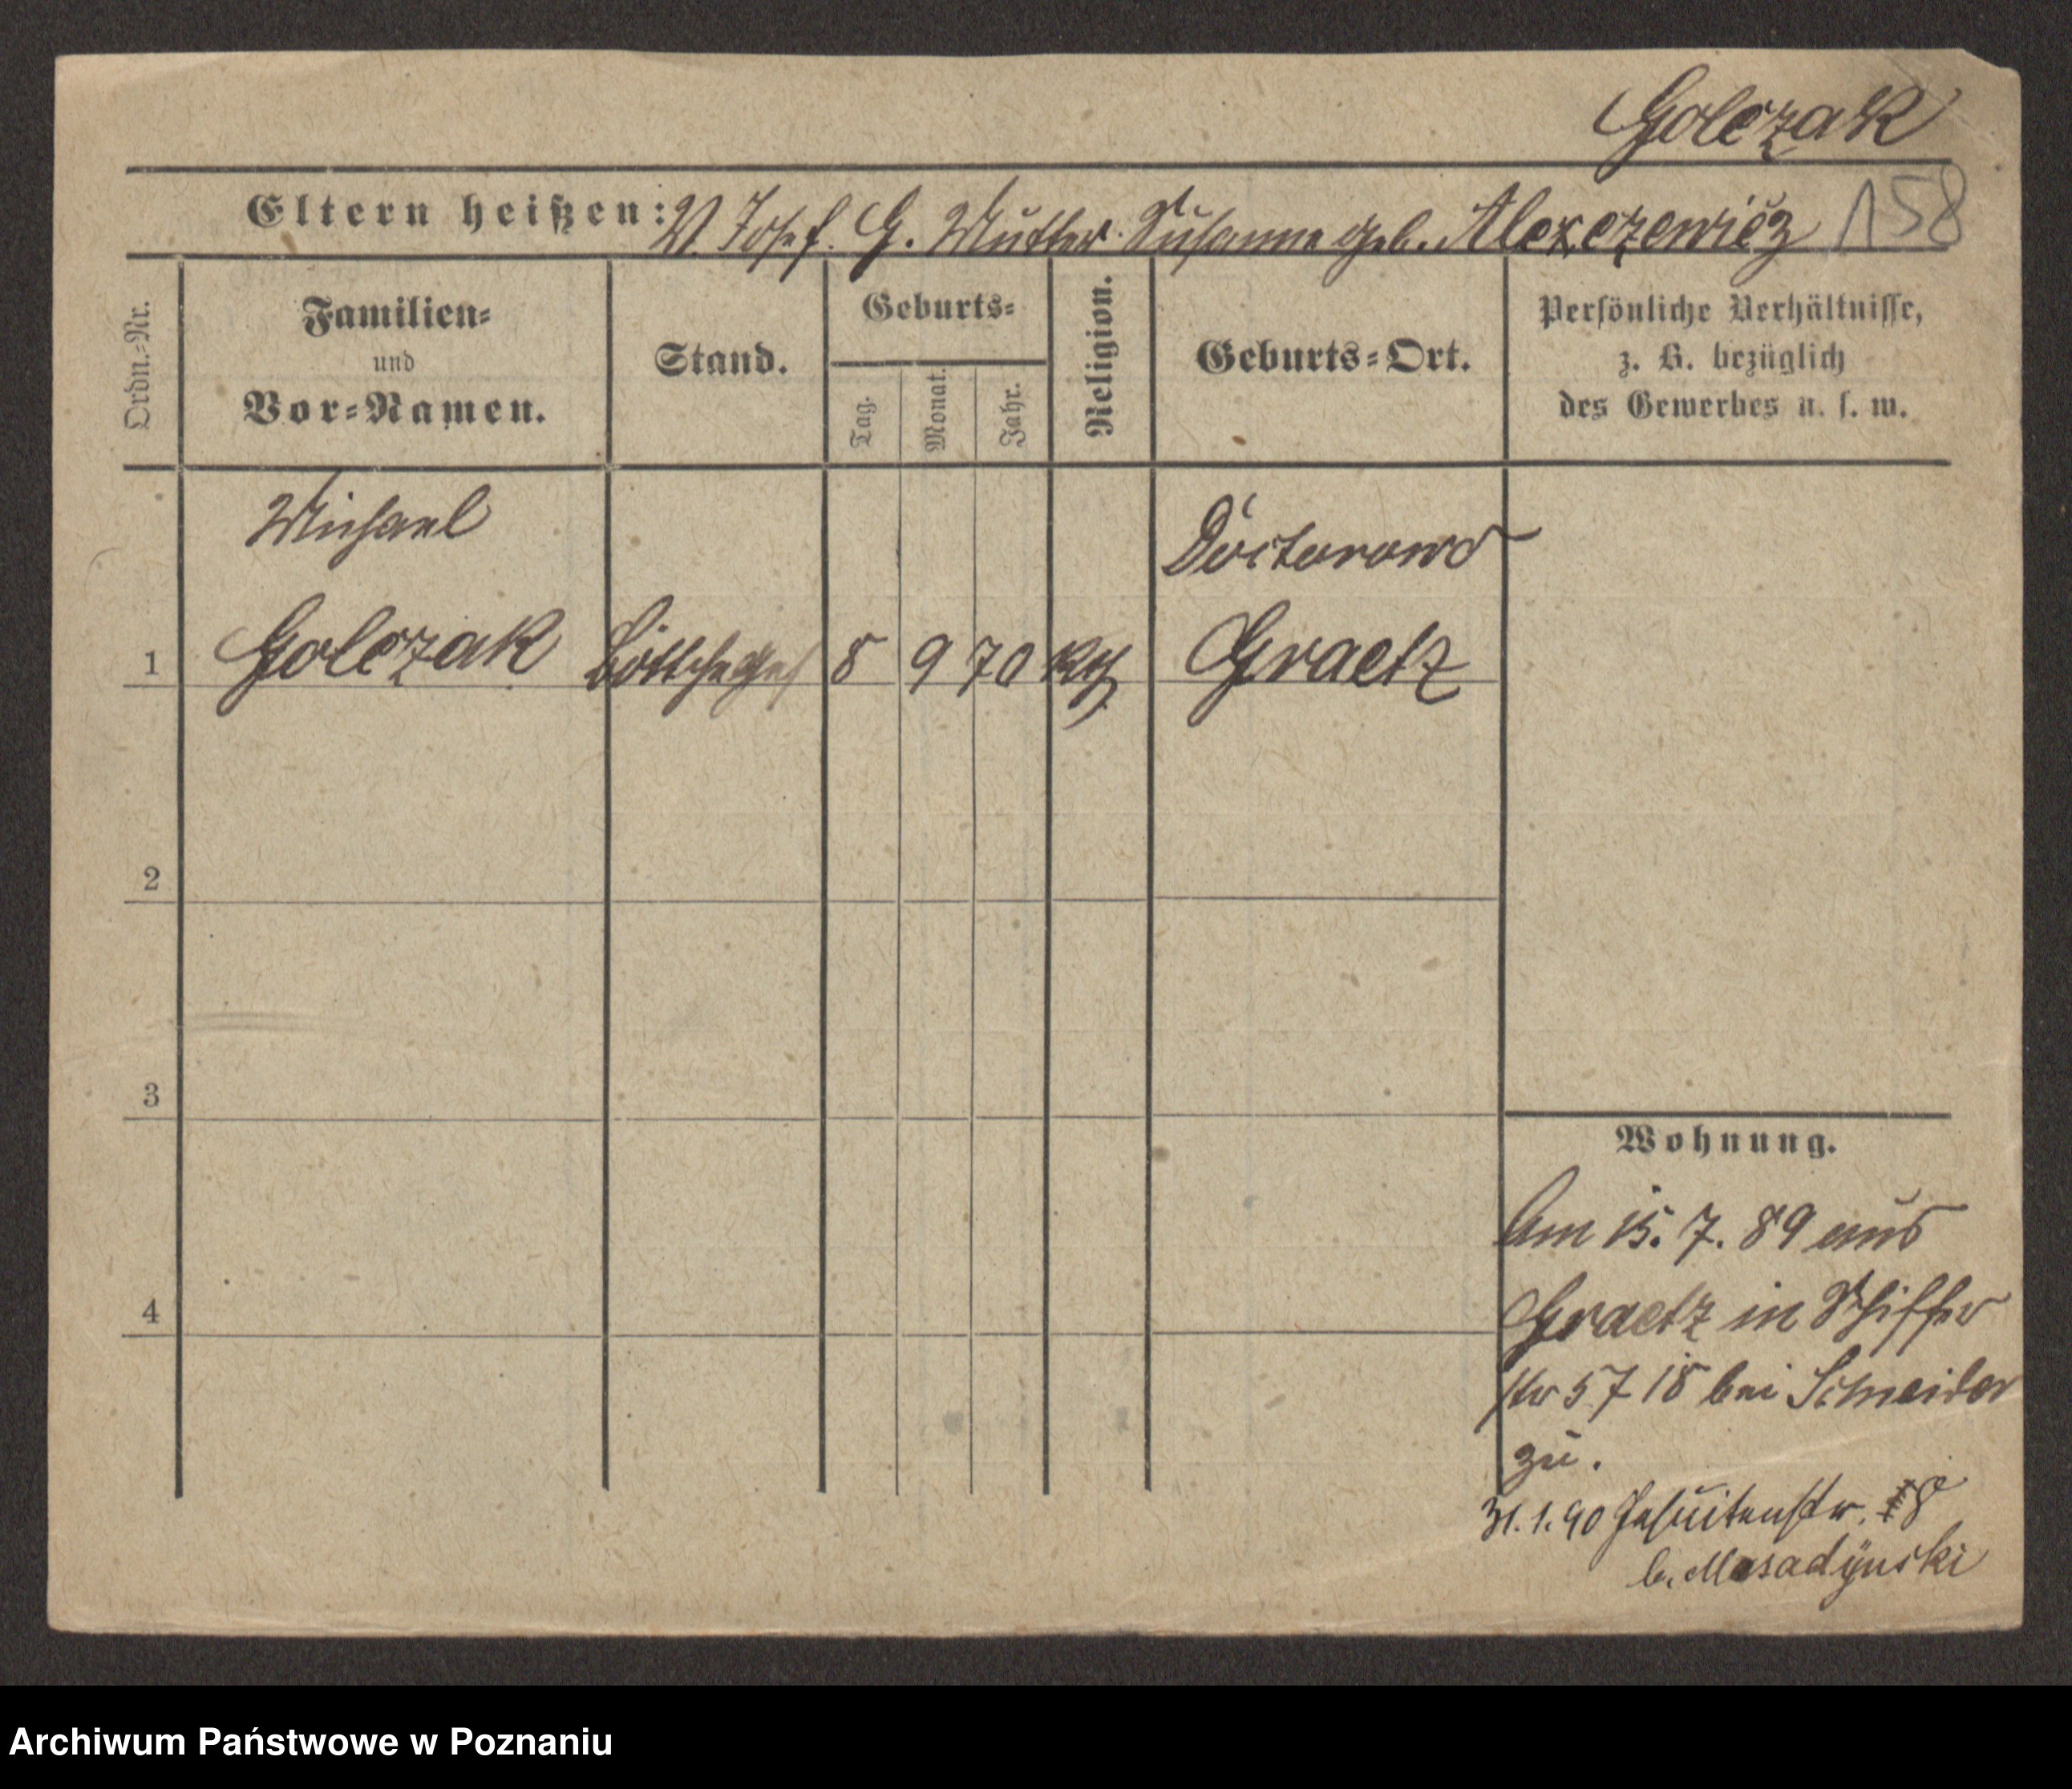 Golczak
Eltern heißen: V. Josef. G. Mutter Susanne geb. Alexczewicz 158
Ordn.=Nr.
Familien=
und
Vor=Namen.
Stand.
Geburts=
Tag.
Monat.
Jahr.
Religion.
Geburts=Ort.
Persönliche Verhältnisse,
z. B. bezüglich
des Gewerbes u. s. w.
Michael
Doctorowo
1 Golczak Böttcherges 8 9 70 kth Graetz
2
3
4
Wohnung.
Am 15. 7. 89 aus
Graetz in Schiffer
str 5 7 18 bei Schneider
zu.
31. 1. 90 Jesuitenstr.
b. Masadynski
Archiwum Państwowe w Poznaniu